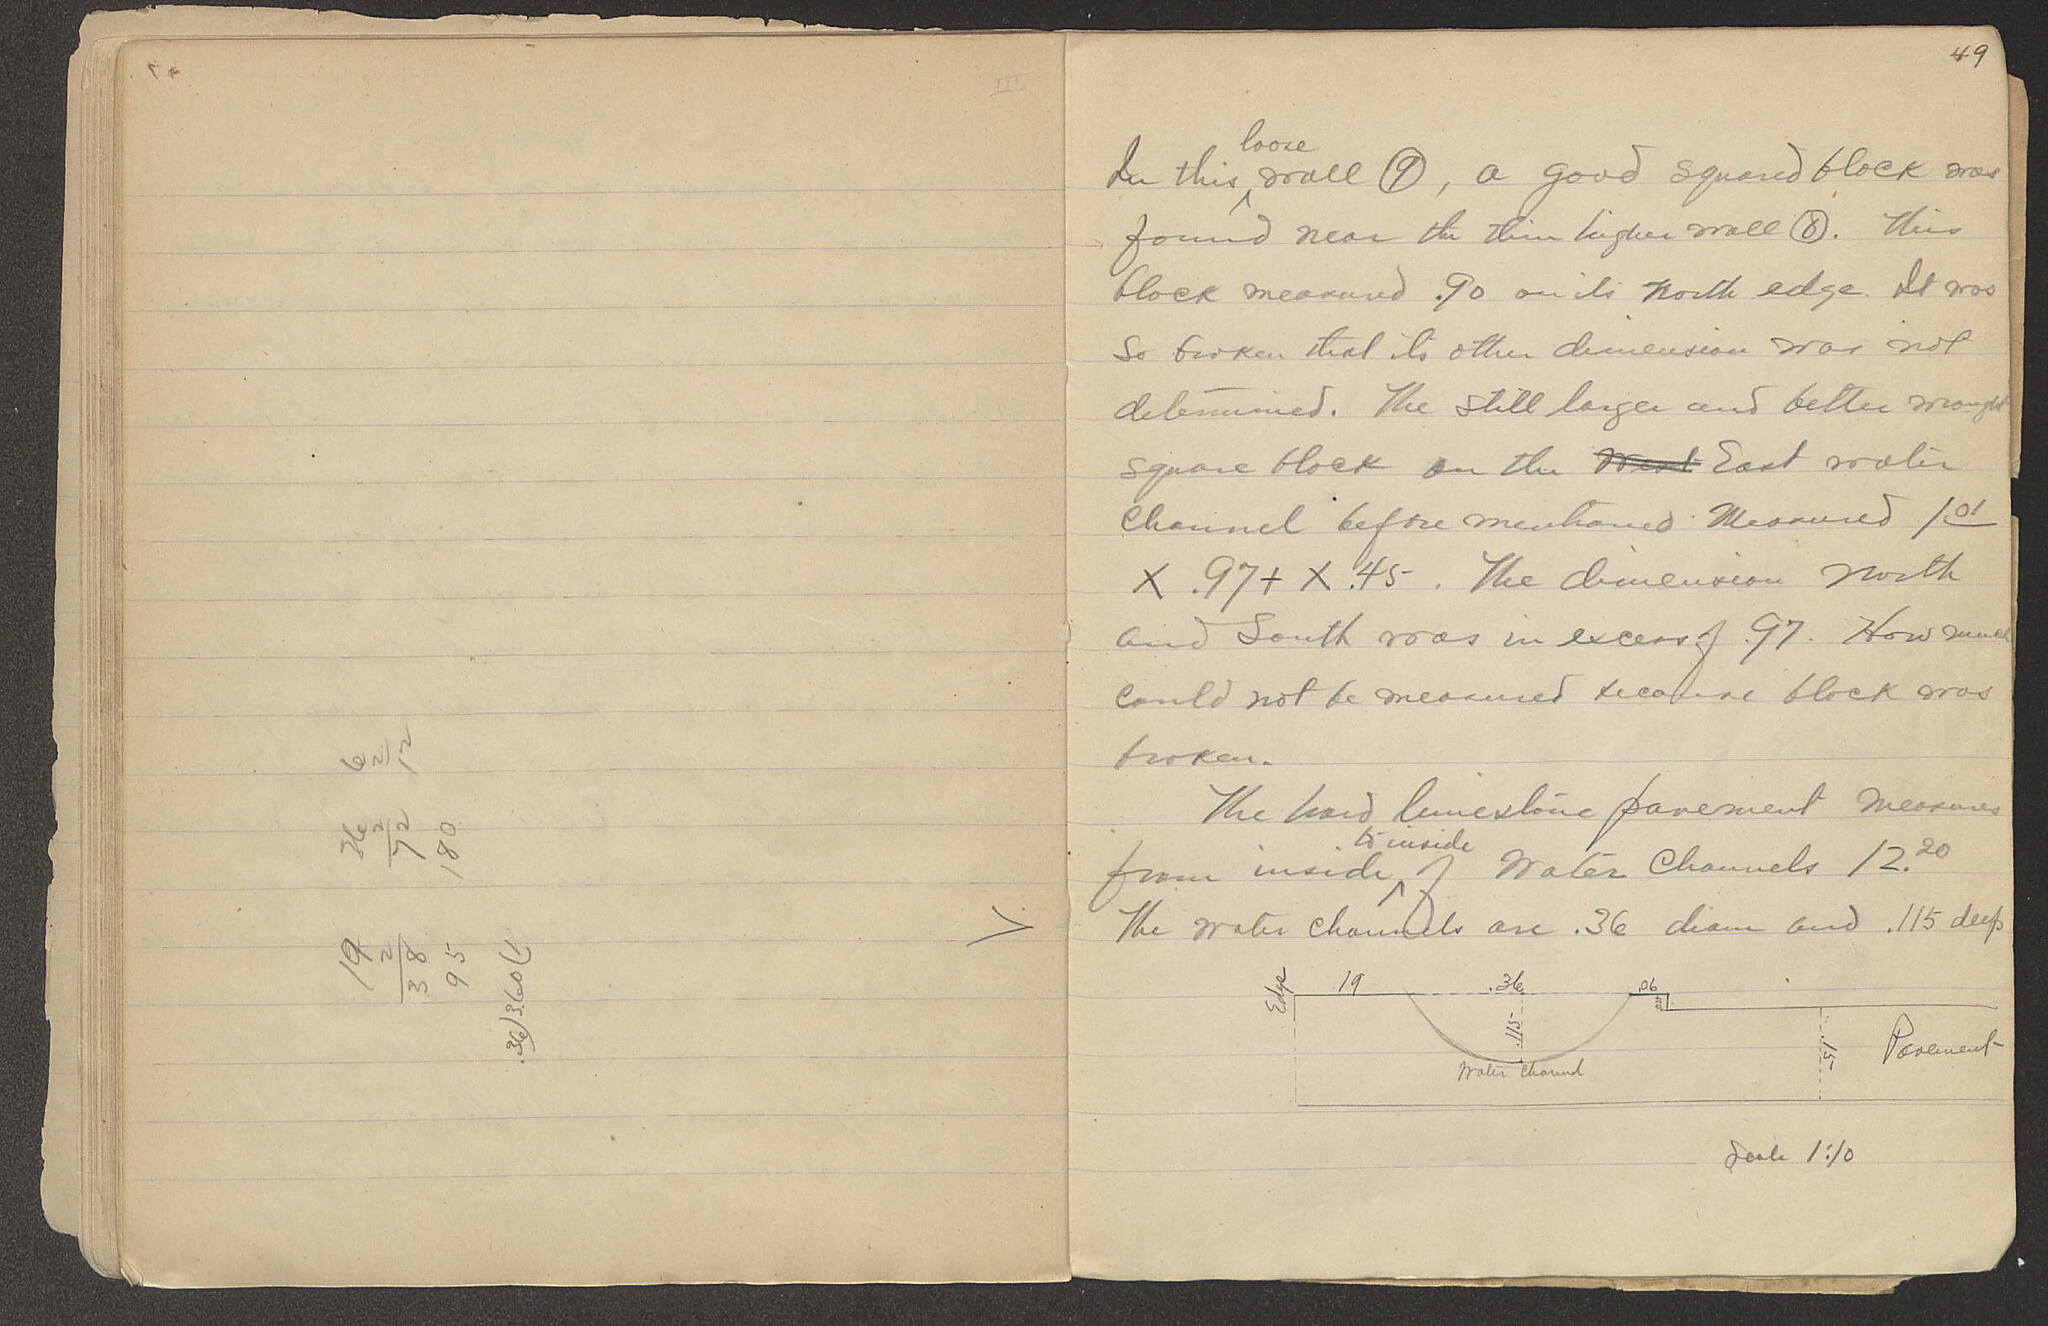 III
6
2
12
36
2
72
180
19
2
38
95
.36)3.60(1
V
49
In this loose wall (9), a good squared block was
found near the thin higher wall (8). This
block measured .90 on its North edge. It was
so broken that its other dimension was not
determined. The still larger and better wrought
square block on the West East water
channel before mentioned measured 1.01
X .97+ X .45. The dimension North
and South was in excess of .97. How much
could not be measured because block was
broken.
The hard limestone pavement measures
from inside to inside of Water Channels 12.20
The water channels are .36 diam and .115 deep
Edge 19 .36 .06
.115
.15
Pavement
Water Channel
Scale 1:10